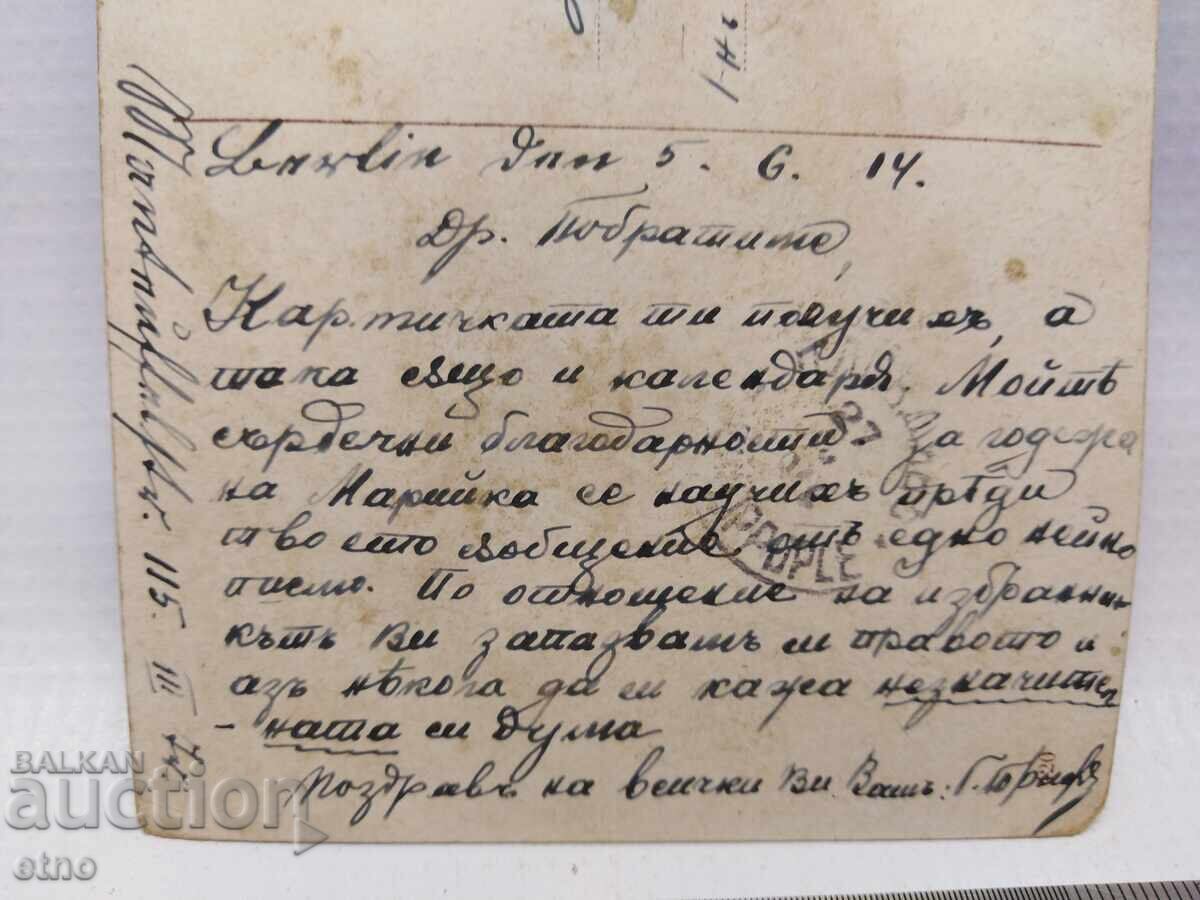 1-нъ
Berlin den 5. 6. 14.
Др. Побратите,
Картичката ти получихъ, а
така също и календаря. Моитѣ
сърдечни благодарности. За годежа
на Марийка се научихъ прѣди
твоето съобщение отъ едно нейно
писмо. По отношение на избранни-
кътъ Ви запазвамъ си правото и
азъ нѣкога да си кажа незначител
-ната си дума
Поздравъ на всички Ви Вашъ: Г.
115. III
PPOPLE
BALKAN
auction
etno